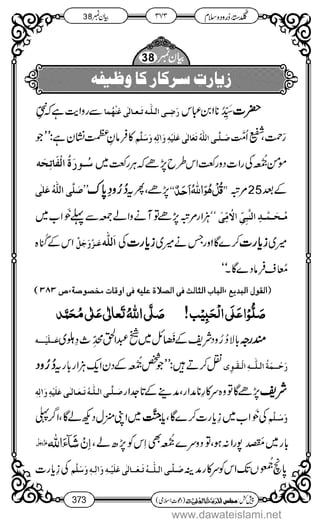 بیان نمبر 38
۳۷۳
گلدستۂ درود و سلام
بیان نمبر 38
زیارت سرکار کا وظیفه
حضرت سیِّدُنا ابنِ عباس رَضِیَ اللّٰہُ تَعَالٰی عَنْہُمَا سے روایت ہے کہ نبیِّ
رحمت، شفیعِ اُمّت صَلَّی اللّٰہُ تَعَالٰی عَلَیْہِ وَاٰلِہٖ وَسَلَّم کا فرمانِ عظمت نشان ہے: ’’جو
مومن جُمُعہ کی رات دو رکعت اس طرح پڑھے کہ ہر رکعت میں سُورَۃُ الْفَاتِحَہ
کے بعد 25 مرتبہ ’’قُلْ هُوَ اللّٰهُ اَحَدٌ‘‘ پڑھے، پھر یہ دُرودِ پاک ’’صَلَّی اللّٰہُ عَلٰی
مُحَمَّدِ النَّبِیِّ الْاُمِّیِّ‘‘ ہزار مرتبہ پڑھے تو آنے والے جمعہ سے پہلے خواب میں
میری زیارت کرے گا اور جس نے میری زیارت کی اللّٰه عَزَّوَجَلَّ اس کے گناہ
مُعاف فرمادے گا۔‘‘
(القول البدیع ،الباب الثالث فی الصلاة علیه فی اوقات مخصوصة،ص ۳۸۳)
صَلُّوْا عَلَی الْحَبِیْب! صَلَّی اللّٰهُ تَعَالٰی عَلٰی مُحَمَّد
مندرجہ بالا دُرود شریف کے فضائل میں شیخ عبدُالحق مُحدِّث دہلوی عَلَیْہِ
رَحْمَۃُ اللّٰہِ الْقَوِی نقل کرتے ہیں: ’’جو شخص جُمُعہ کے دن ایک ہزار بار یہ دُرود
شریف پڑھے گا تو وہ سرکارِ نامدار، مدینے کے تاجدار صَلَّی اللّٰہُ تَعَالٰی عَلَیْہِ وَاٰلِہٖ
وَسَلَّم کی خواب میں زیارت کرے گا، یا جنّت میں اپنی منزل دیکھ لے گا، اگر پہلی
بار میں مقصد پورا نہ ہو تو، دوسرے جُمُعہ بھی اِس کو پڑھ لے، اِنْ شَآءَاللّٰه
پانچ جُمُعوں تک اس کو سرکارِ مدینہ صَلَّی اللّٰہُ تَعَالٰی عَلَیْہِ وَاٰلِہٖ وَسَلَّم کی زیارت
373
www.dawateislami.net